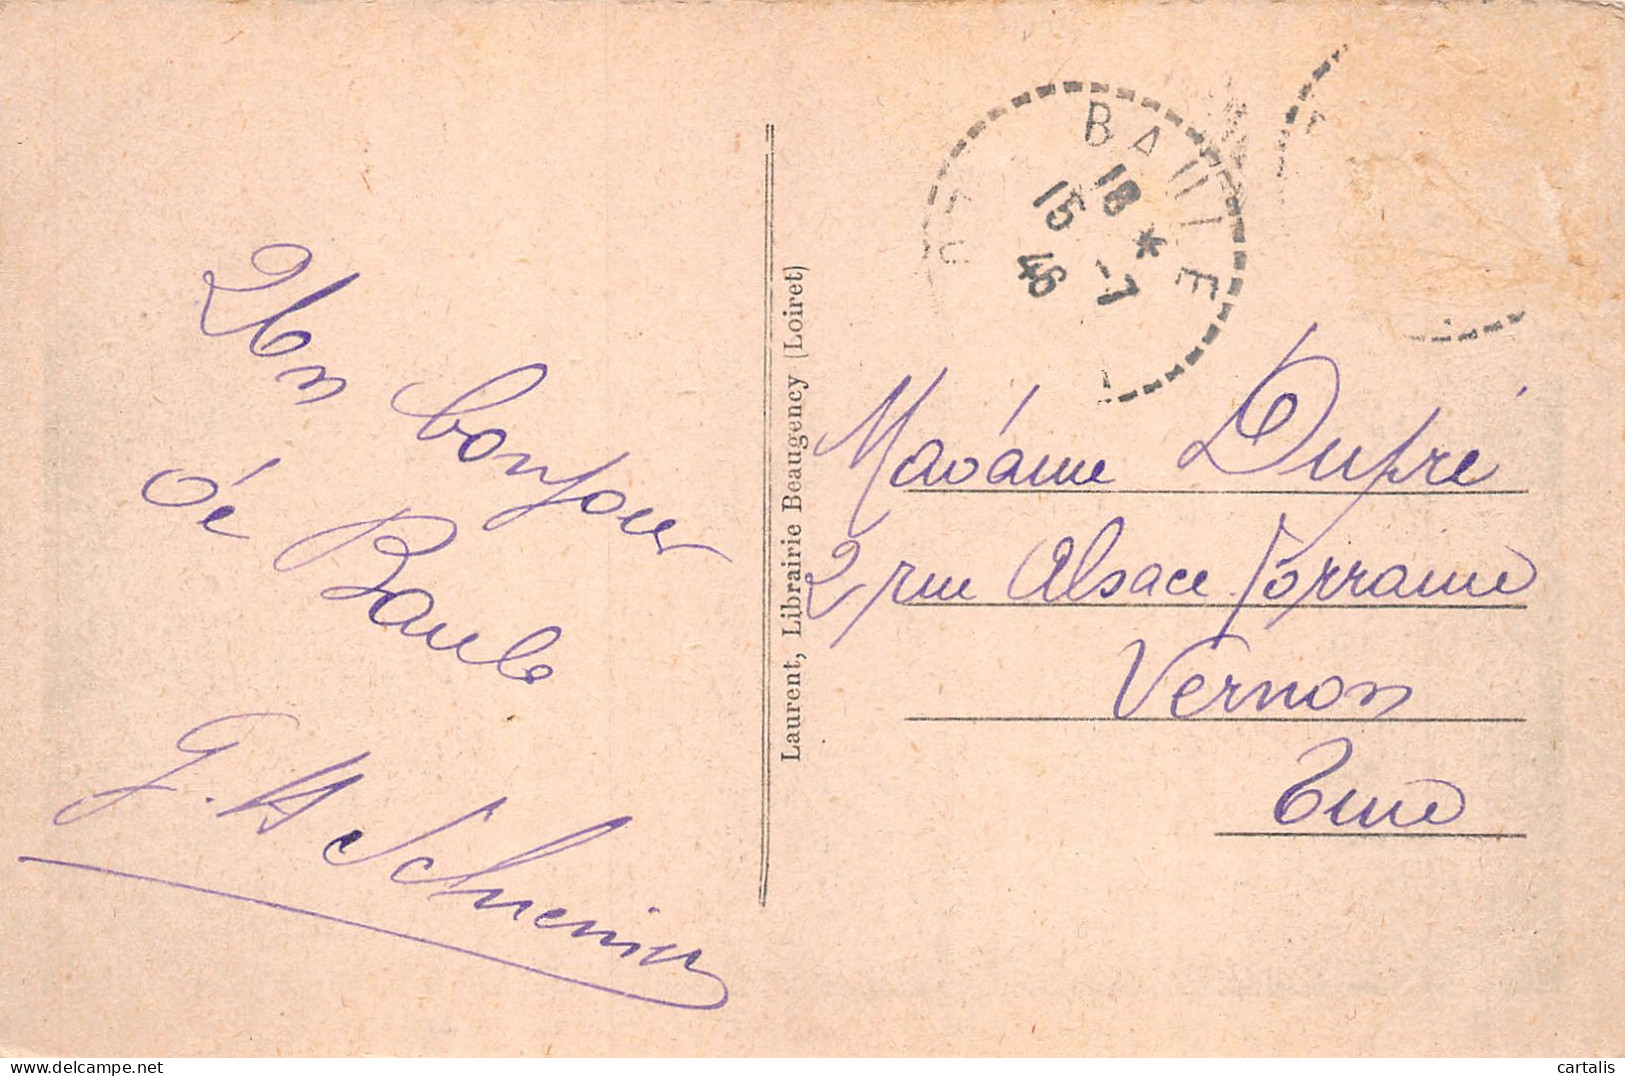 Un bonjour
de Baule
Laurent, Librairie Beaugency (Loiret)
BAULE
18 *
15 -7
46
Madame Dupré
2 rue Alsace Lorraine
Vernon
Eure
cartalis